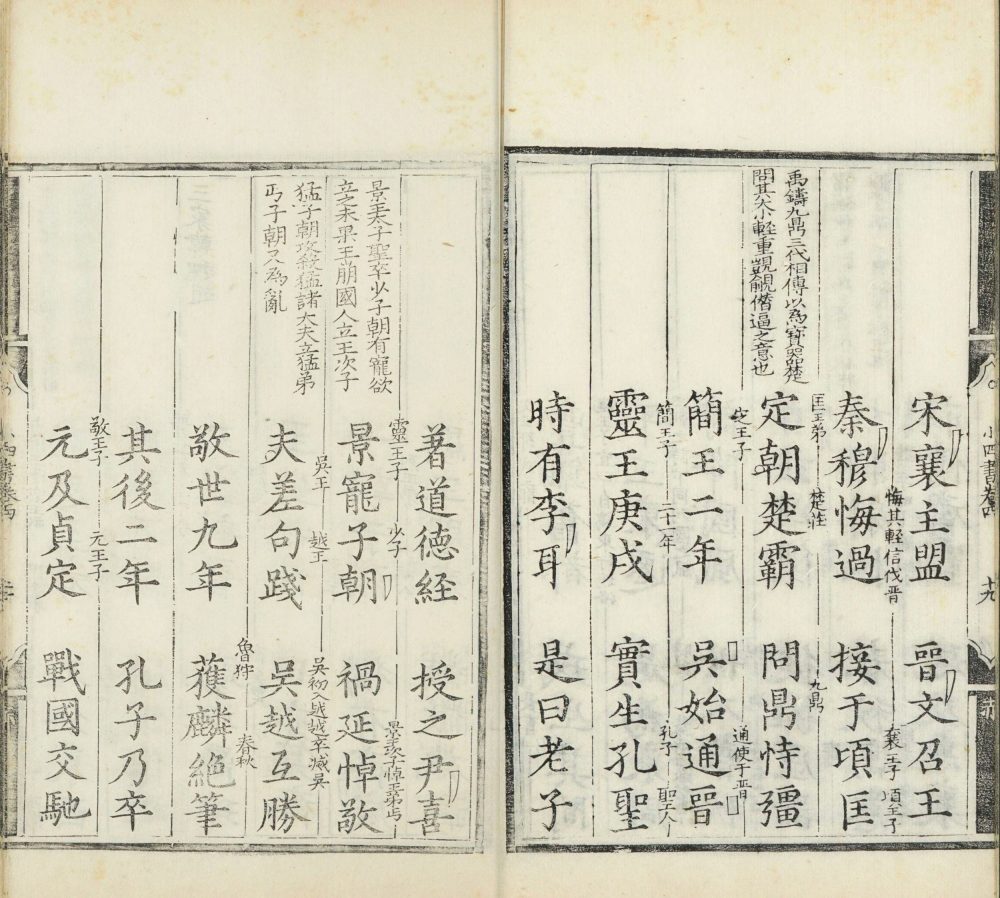 宋襄主盟 晉文召王
悔其輕信伐晉
秦穆悔過 接于頃匡
襄王子 頃王子
禹鑄九鼎三代相傳以為寶器楚
問其大小輕重覬覦僭逼之意也
匡王弟 楚莊
定朝楚霸 問鼎恃彊
九鼎
定王子
簡王二年 吳始通晉
通使于晉
簡王子 二十一年
靈王庚戌 實生孔聖
孔子 聖人
時有李耳 是曰老子
小四書卷四
十九
著道德経 授之尹喜
景王太子聖卒少子朝有寵欲
立之未果王崩國人立王次子
猛子朝攻殺猛諸大夫立猛弟
丐子朝又為亂
靈王子 少子
景寵子朝 禍延悼敬
景次子悼王弟丐
吳王 越王
夫差句踐 吳越互勝
吳初入越越卒滅吳
敬世九年 獲麟絕筆
魯狩 春秋
其後二年 孔子乃卒
敬王子 元王子
元及貞定 戰國交馳